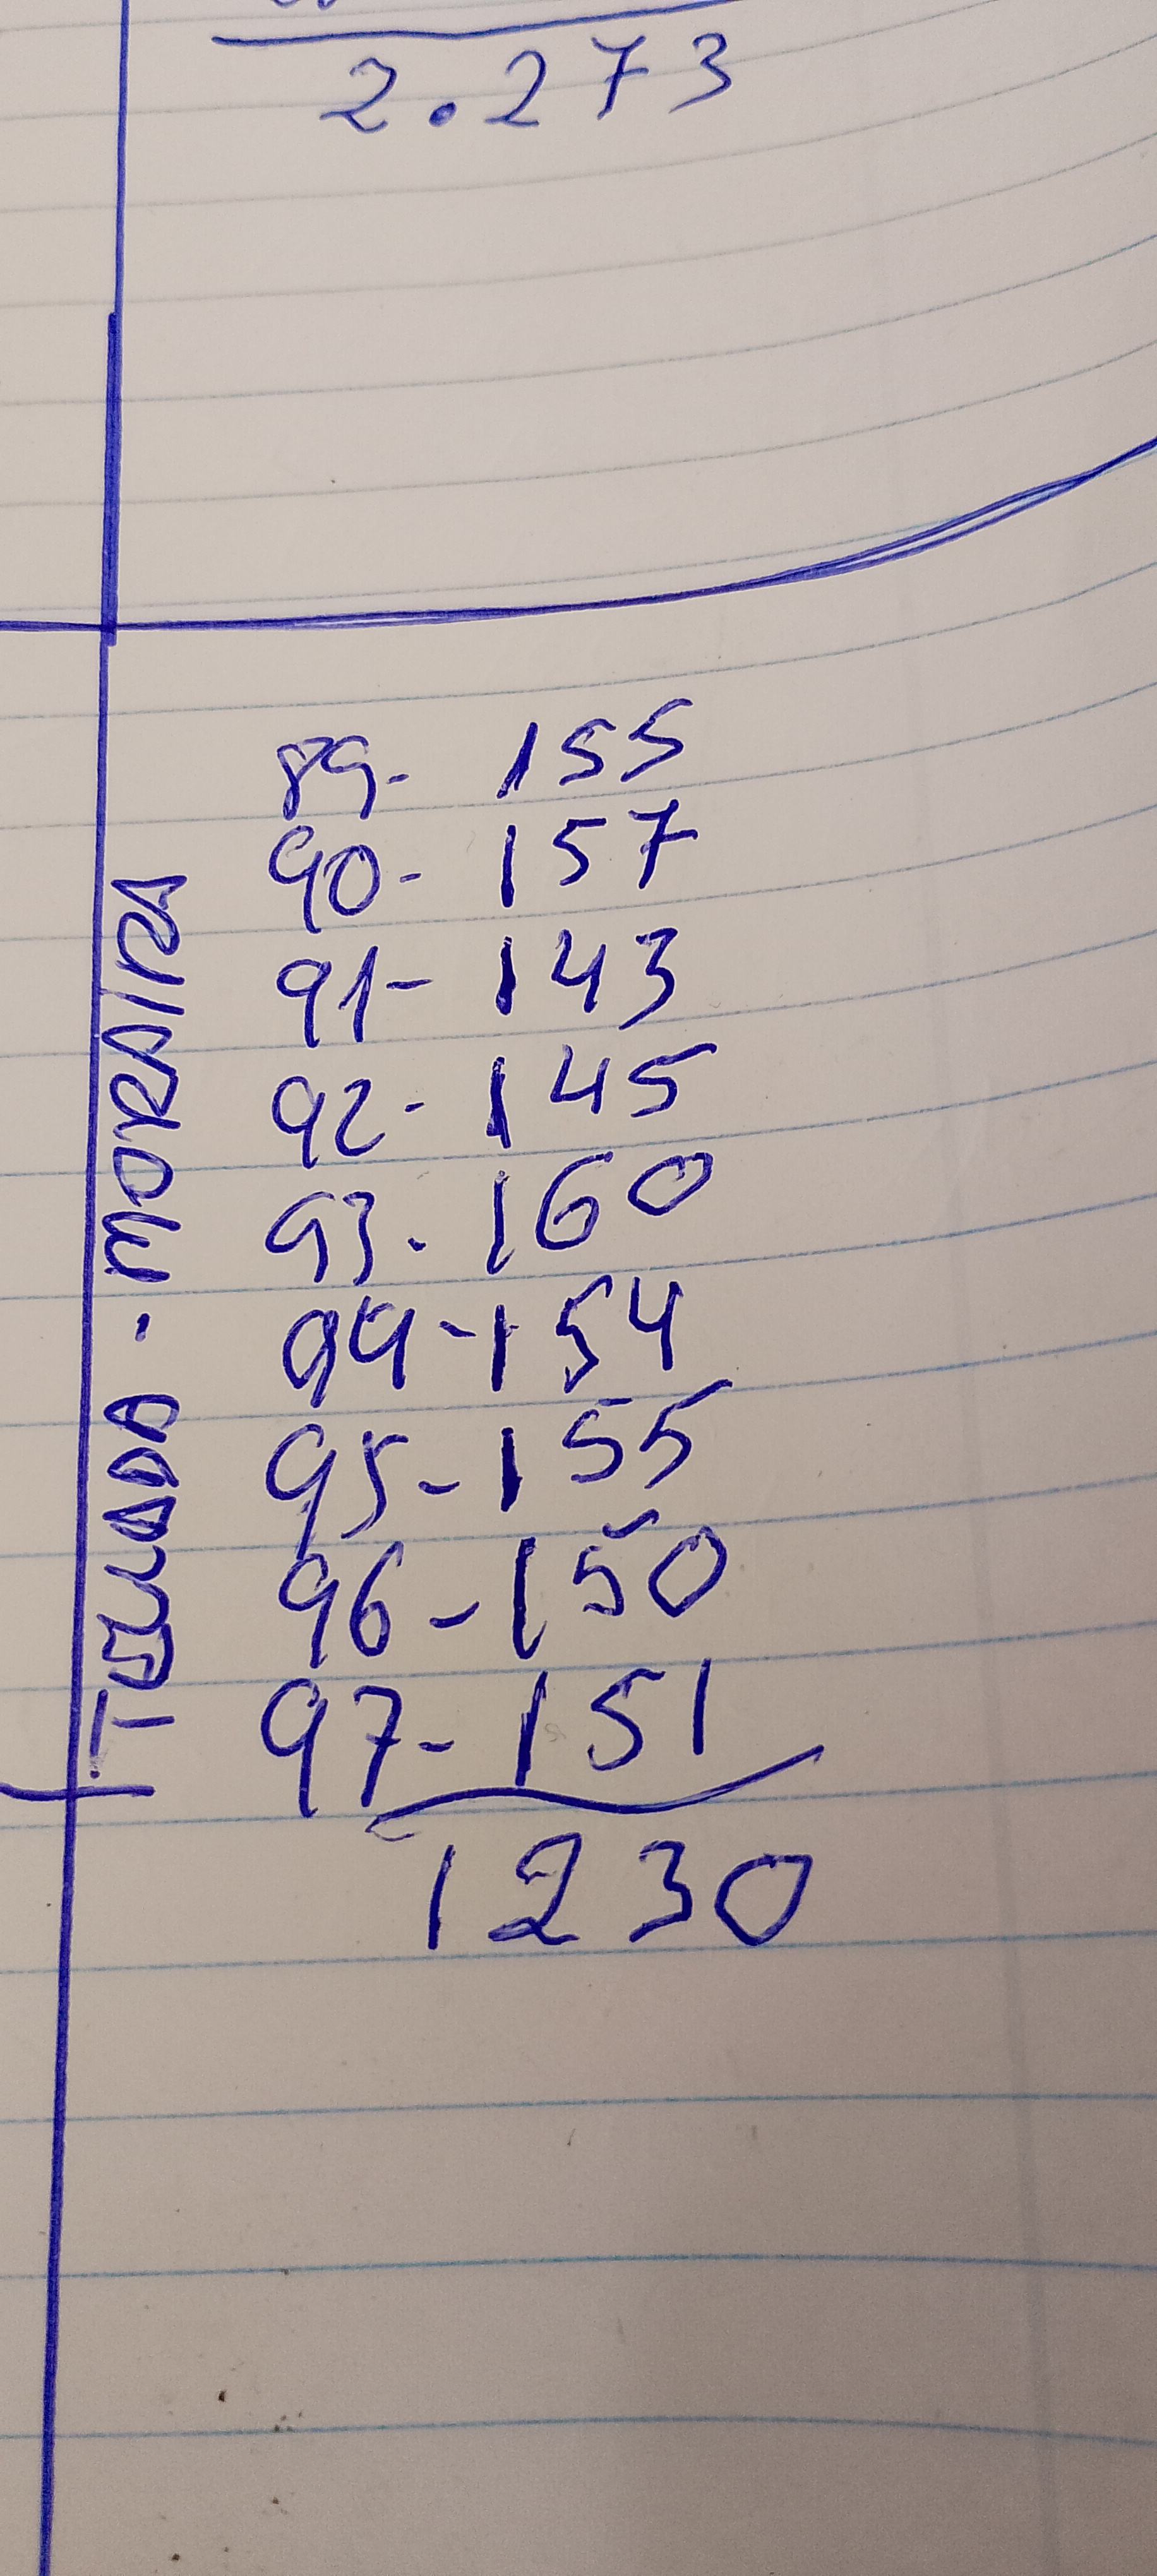 2.273
TEULADA - MORAIRA
89- 155
90- 157
91- 143
92- 145
93- 160
94- 154
95- 155
96- 150
97- 151
1230